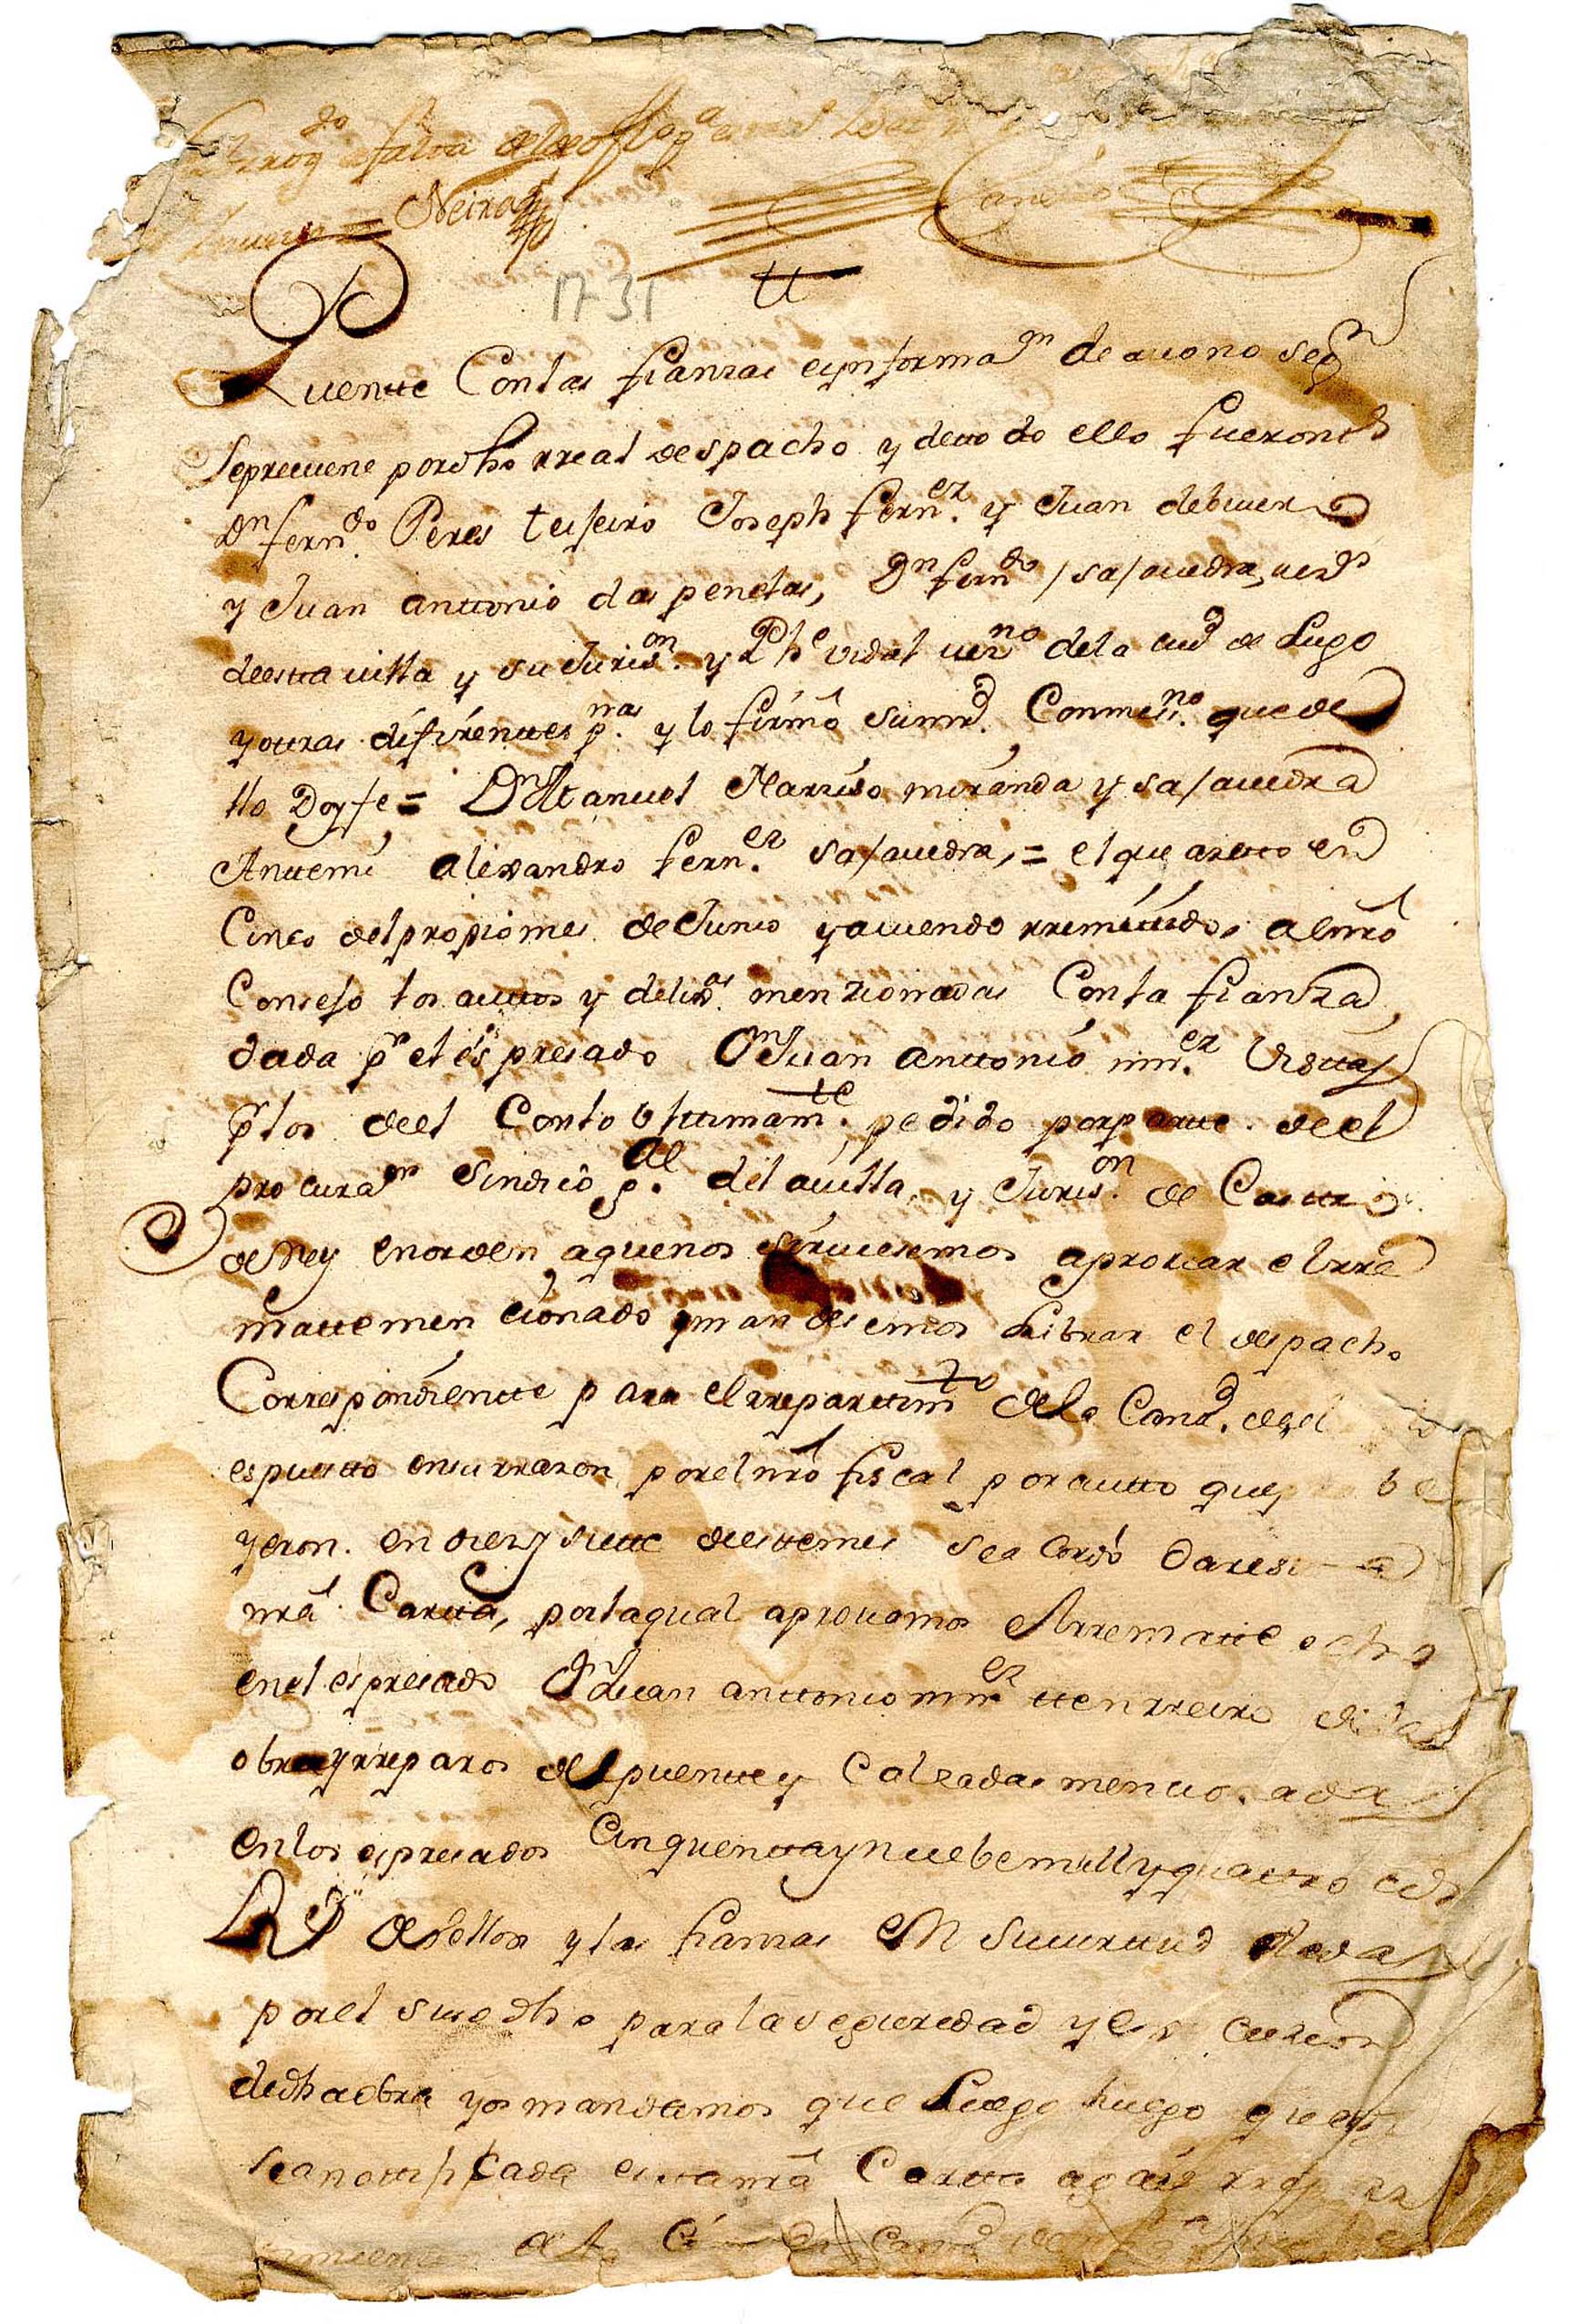 Neira
1731
Puentte Con las fianzas e ynforma.on de avono seg.n
se previene por dho rreal despacho y de ttodo ello fueron ts
Dn fern.do Peres teijeiro Joseph fern.ez y Juan debiver
y Juan anttonio das penelas, Dn fern.do sa/avedra, vez.s
de estta villa y su Juris.on y Phe vidal vez.no de la ciud de Lugo
y ottras difirenttes p.nas y lo firmó su mrd. Conmi ss.no que de
llo Doy fe = Dn Manuel Narziso miranda y sa/avedra
Antte mi alexandro fern.ez sa/avedra, = el que azetto en
Cinco del propio mes de Junio y aviendo rremittido, al nro
Consejo los auttos y delix.as menzionadas Con la fianza
dada pr el espresado Dn Juan anttonio mrn.ez Vistta
pr los de el Con lo ulttimam.te pedido por partte de el
procura.or Sindico g.al de la villa, y Juris.on de Casttro
de Rey en orden a que nos sirviesemos aprovar el rre
matte mencionado y mandasemos Librar el despacho
Correspondientte para el rreparttim.to de la Cantd. de el
espuestto en su rrazon por el nro fiscal por autto que be
yeron. en diez y siette de estte mes se acordó dar esta
nra Cartta, por la qual aprovamos el rrematte echo
en el espresado Dn Juan anttonio mrnez ttenrreiro de las
obras y rreparos del puentte y Calzadas mencionadas
en los espresados Cinquentta y nuebe mill y quattro cos
Rs de vellon y las fianzas en su virttud dadas
por el suso dho para la seguredad y ex cuzion
de dha obra y os mandamos que Luego luego que os
sea nottificada estta nra Cartta agais rrepar